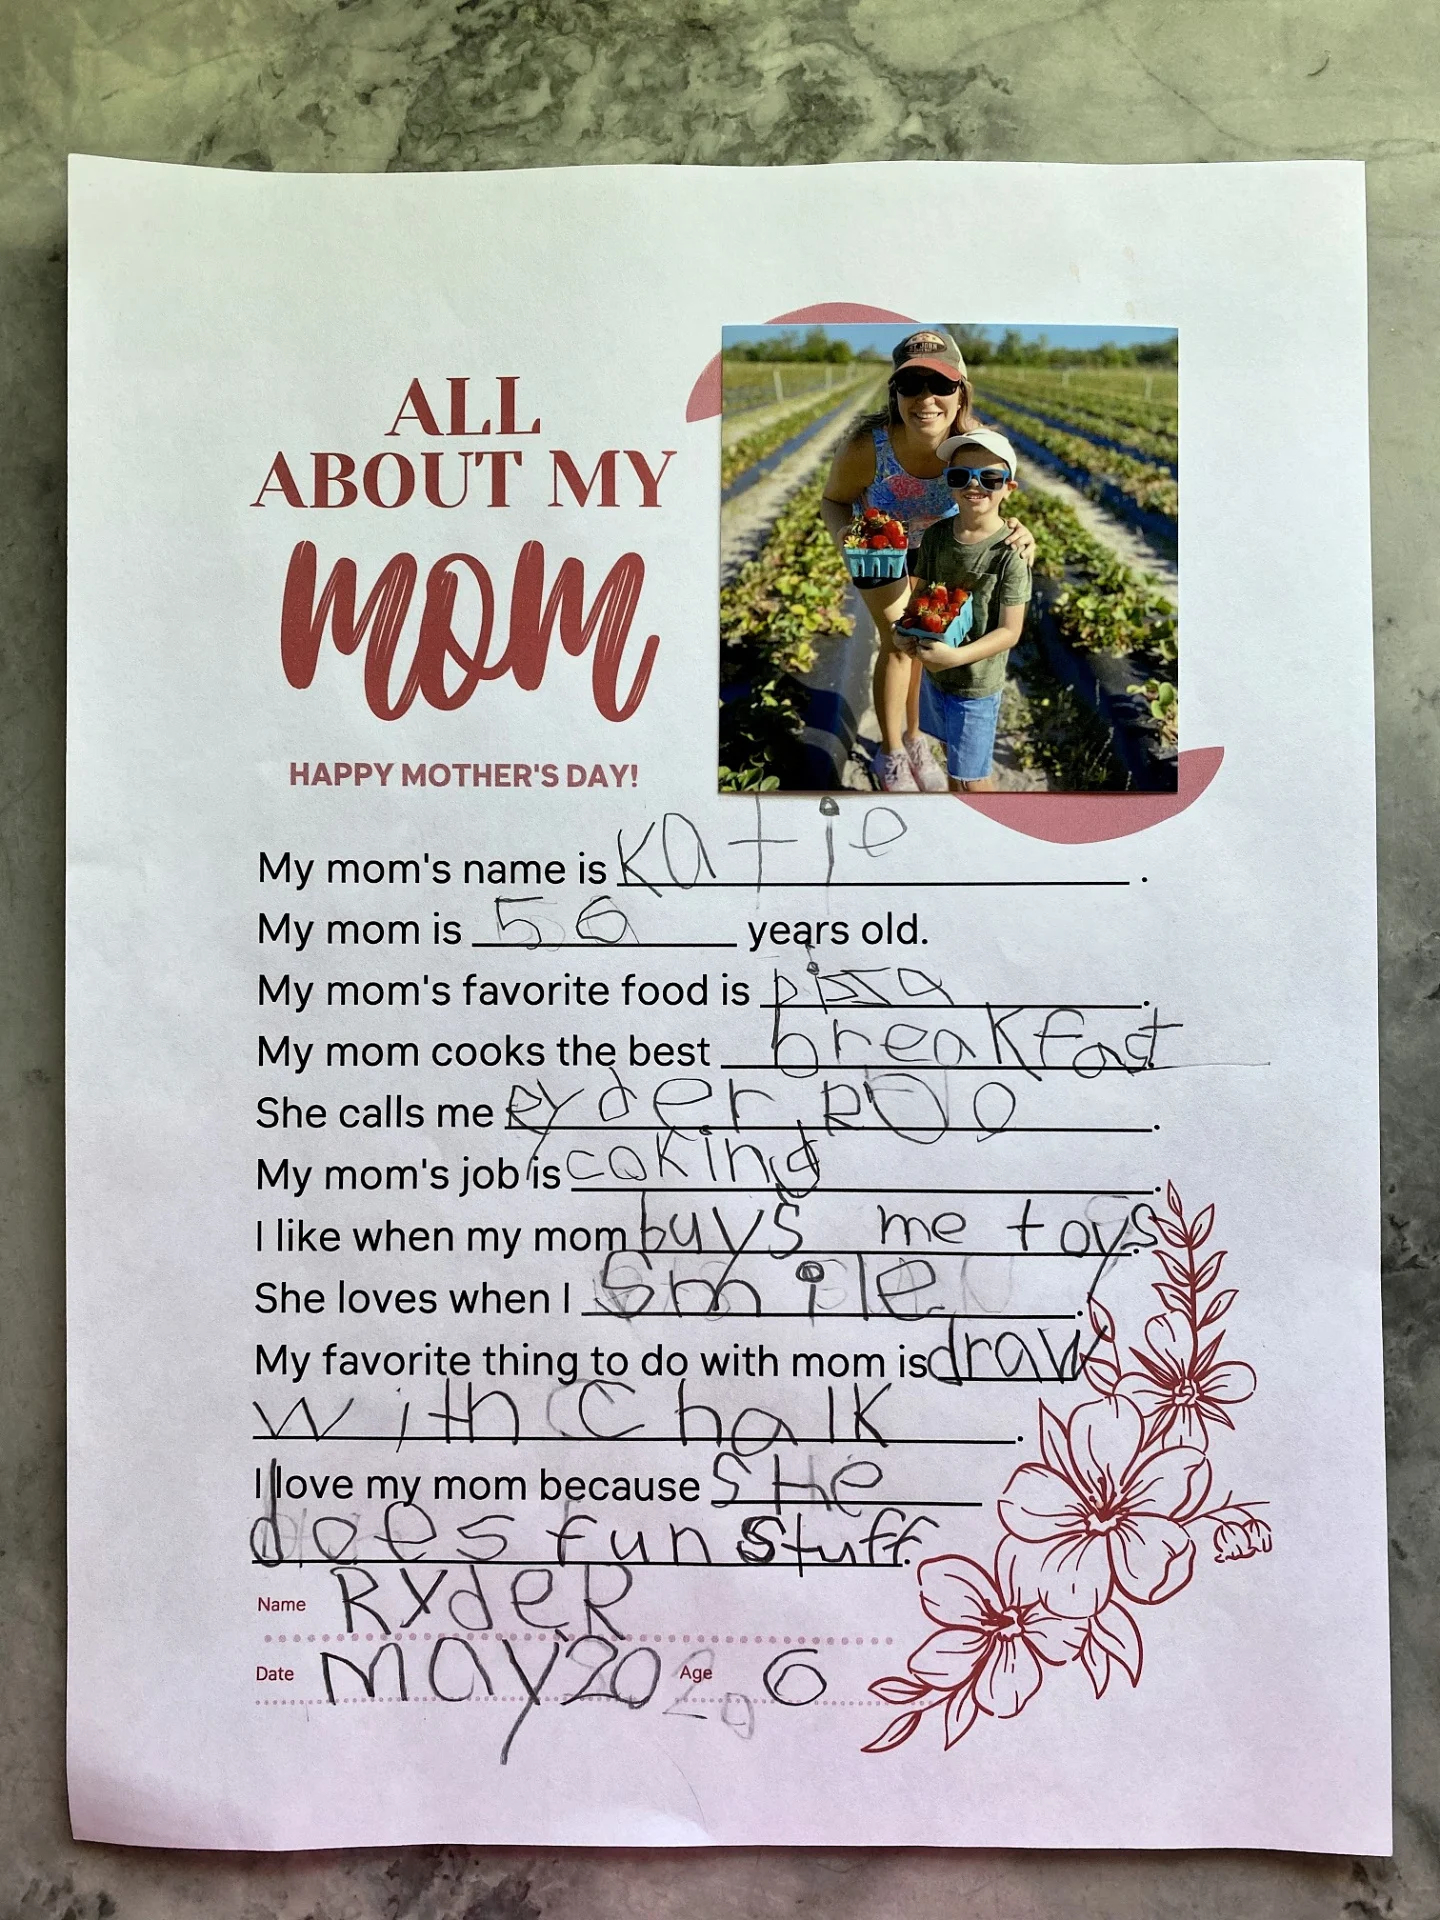 ALL
ABOUT MY
mom
HAPPY MOTHER'S DAY!
ST. JOHN
My mom's name is Katie .
My mom is 56 years old.
My mom's favorite food is pizza .
My mom cooks the best breakfast
She calls me Ryder ROO .
My mom's job is cokind .
I like when my mom buys me toys .
She loves when I Smile .
My favorite thing to do with mom is draw
with Chalk .
I love my mom because SHe
does fun Stuff.
Name RydeR
Date May 20 Age 6